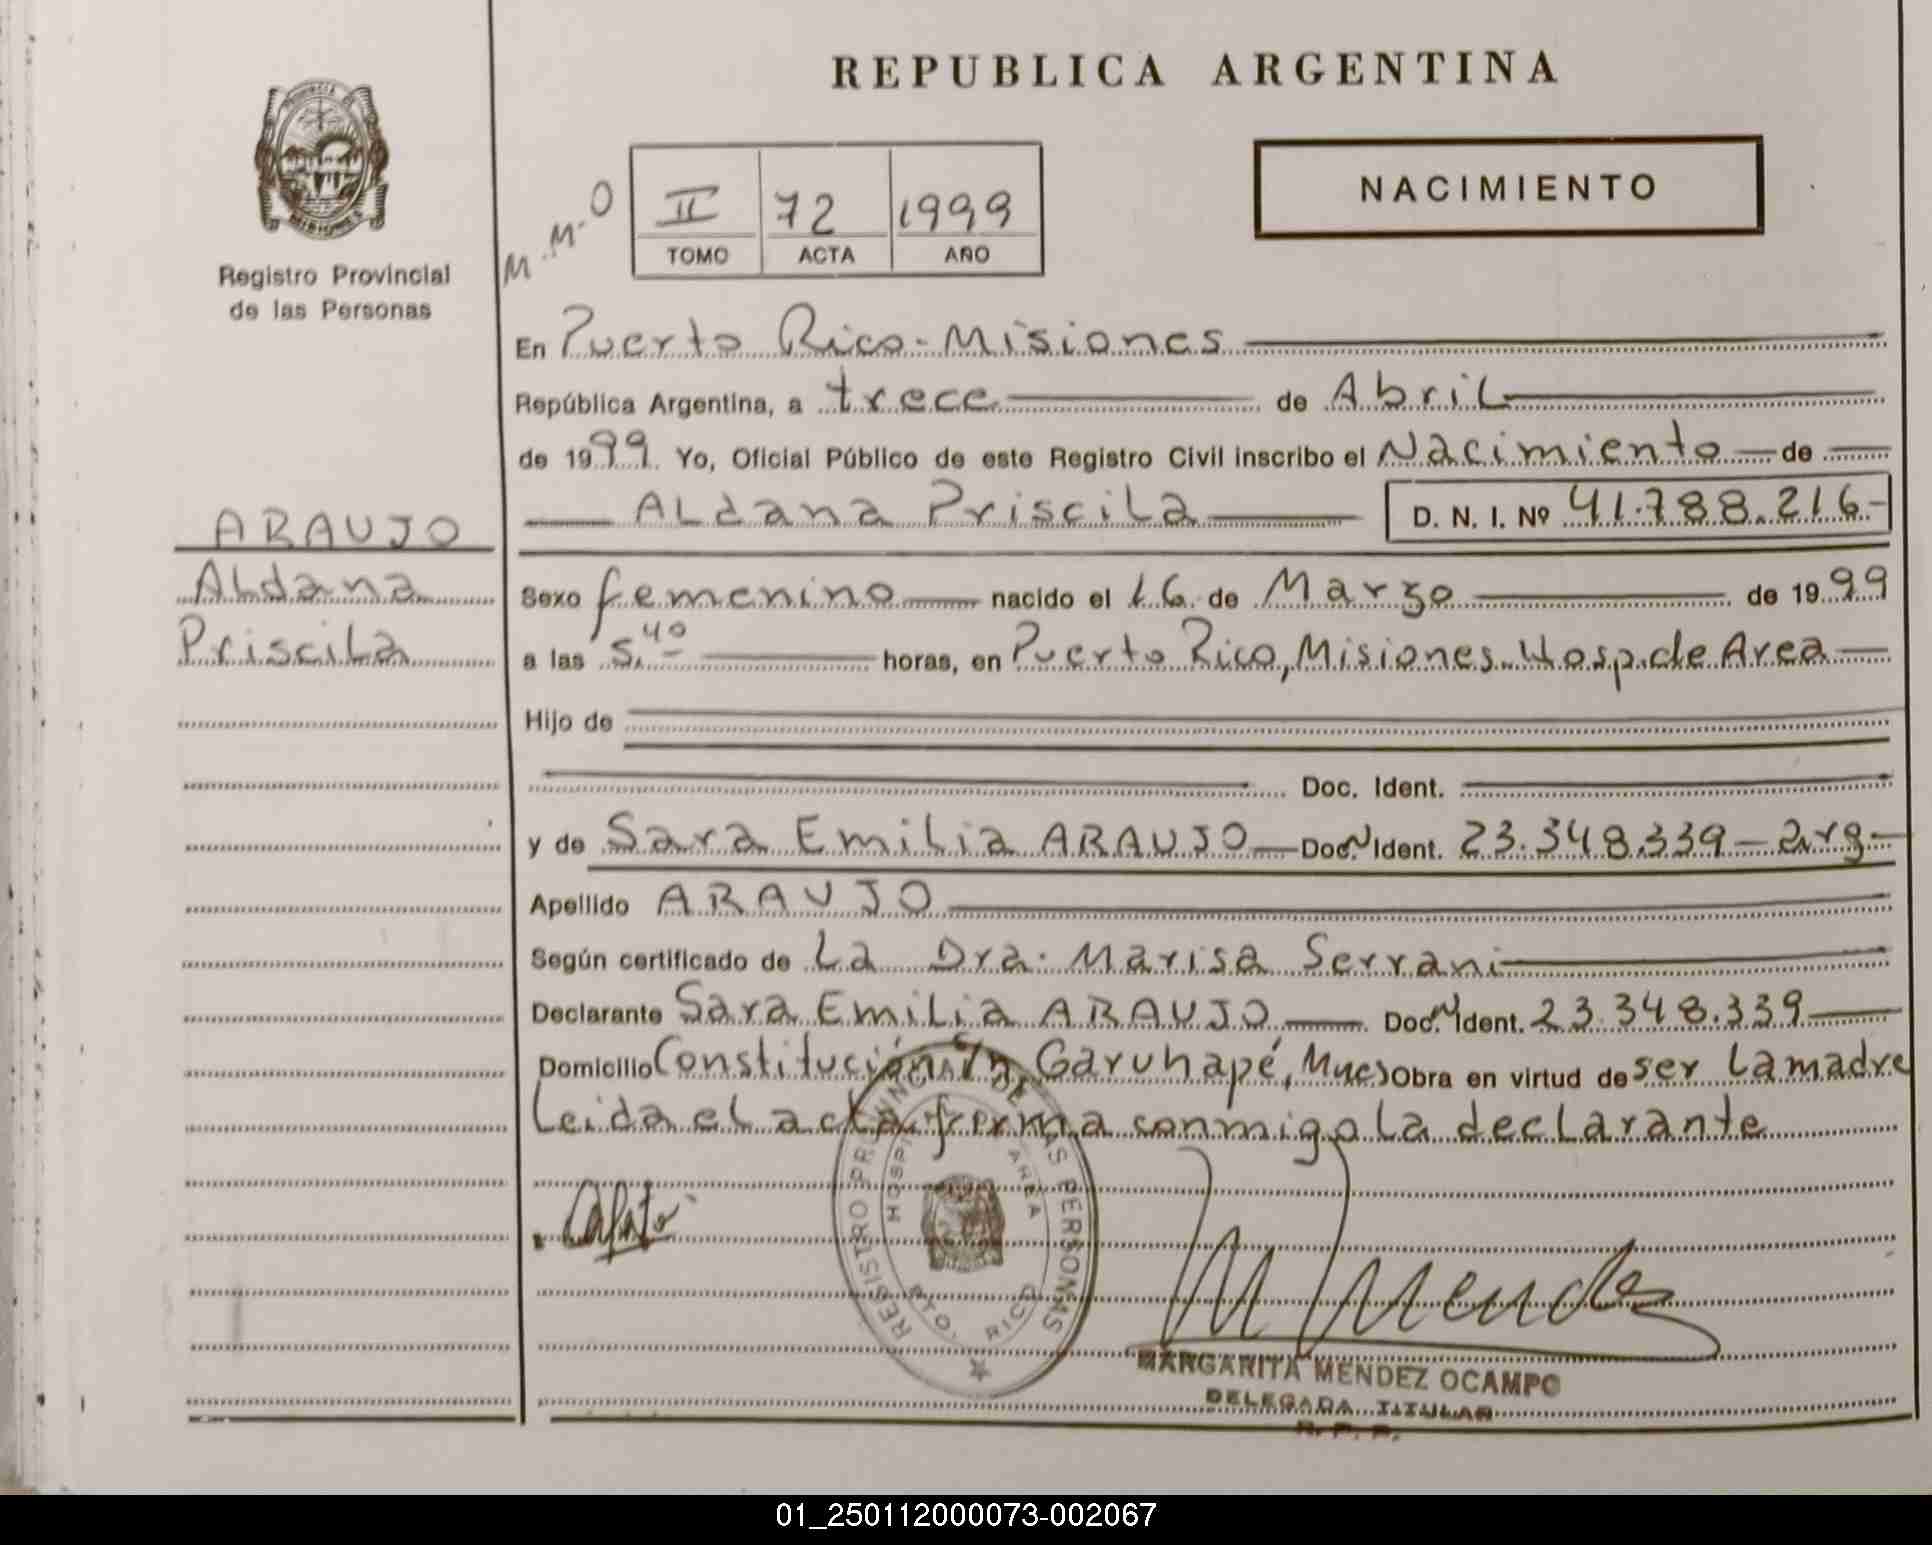 REPUBLICA ARGENTINA
NACIMIENTO
M.M.O
II 72 1999
TOMO ACTA AÑO
PROVINCIA DE
MISIONES
Registro Provincial
de las Personas
En Puerto Rico - Misiones
República Argentina, a trece de Abril
de 1999. Yo, Oficial Público de este Registro Civil inscribo el Nacimiento de
Aldana Priscila D. N. I. Nº 41.788.216-
ARAUJO
Aldana
Priscila
Sexo femenino nacido el 16 de Marzo de 1999
a las 5.40 horas, en Puerto Rico, Misiones. Hosp. de Area
Hijo de
Doc. Ident.
y de Sara Emilia ARAUJO Doc. N Ident. 23.348.339 - arg
Apellido ARAUJO
Según certificado de La Dra. Marisa Serrani
Declarante Sara Emilia ARAUJO Doc. N Ident. 23.348.339
Domicilio Constitución s/n Garuhapé, Mnes Obra en virtud de ser la madre
Leida el acta firma conmigo la declarante
REGISTRO PROVINCIAL DE LAS PERSONAS
HOSPITAL AREA
PTO. RICO
M Mendez
MARGARITA MENDEZ OCAMPO
DELEGADA TITULAR
R. P. P.
01_250112000073-002067